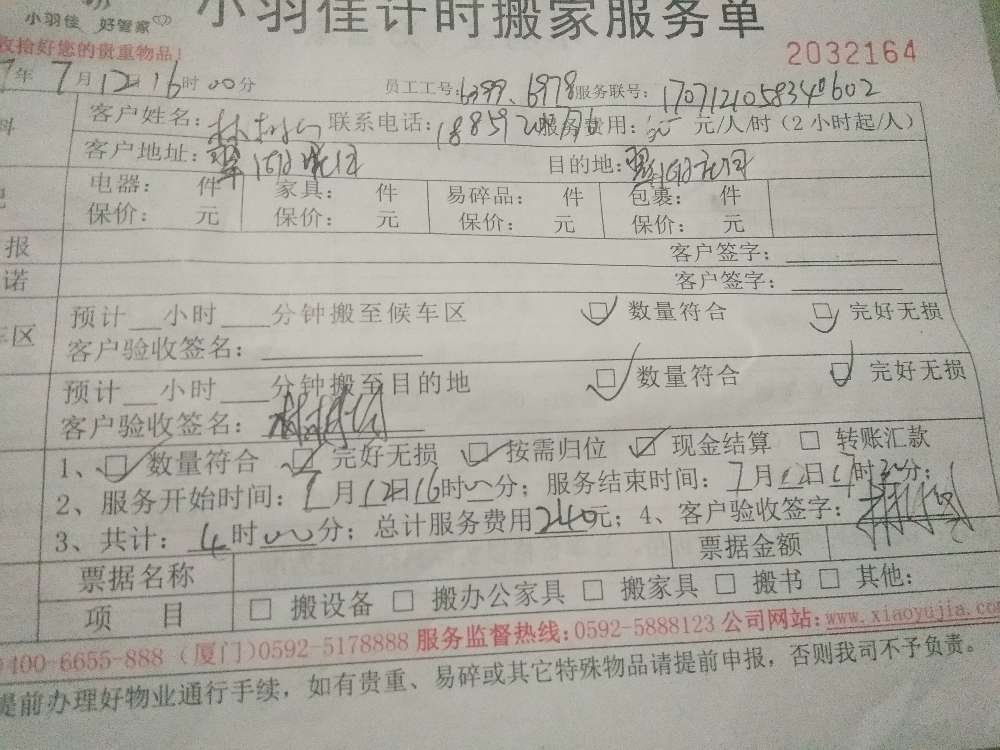 小羽佳 好管家
小羽佳计时搬家服务单
收拾好您的贵重物品!
2032164
7年7月12日16时00分 员工工号:6399、6978 服务联号:1707121058340602
客户姓名: 联系电话: 服务费用: 元/人/时(2小时起/人)
客户地址: 目的地:
电器: 件 家具: 件 易碎品: 件 包裹: 件
保价: 元 保价: 元 保价: 元 保价: 元
报 客户签字:
诺 客户签字:
预计__小时___分钟搬至候车区 数量符合 完好无损
车区
客户验收签名:
预计__小时___分钟搬至目的地 数量符合 完好无损
客户验收签名:
1、数量符合 完好无损 按需归位 现金结算 转账汇款
2、服务开始时间: 月12日16时00分; 服务结束时间: 7月12日17时30分;
3、共计: 4时00分; 总计服务费用240元; 4、客户验收签字:
票据名称 票据金额
项 目 搬设备 搬办公家具 搬家具 搬书 其他:
400-6655-888 (厦门)0592-5178888 服务监督热线:0592-5888123 公司网站:www.xiaoyujia.co
提前办理好物业通行手续,如有贵重、易碎或其它特殊物品请提前申报,否则我司不予负责。